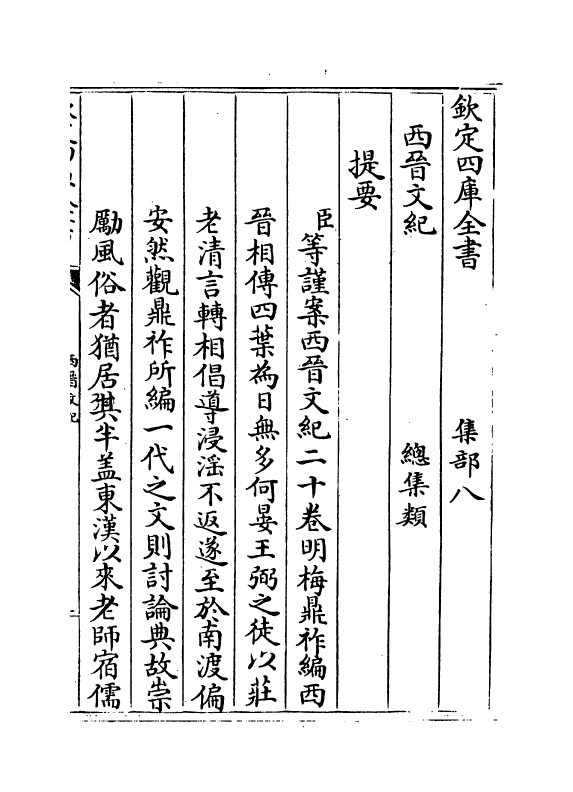 欽定四庫全書　集部八
西晉文紀　總集類
提要
臣等謹案西晉文紀二十卷明梅鼎祚編西
晉相傳四葉為日無多何晏王弼之徒以莊
老清言轉相倡導浸淫不返遂至於南渡偏
安然觀鼎祚所編一代之文則討論典故崇
勵風俗者猶居其半盖東漢以來老師宿儒
西晉文紀